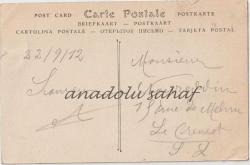 POST CARD Carte Postale POSTKARTE
BRIEFKAART - POSTKAART
CARTOLINA POSTALE - ОТКРЫТОЕ ПИСЬМО - TARJETA POSTAL
22/9/12
Monsieur
anadolusahaf
15 rue de
Le Creusot
S L